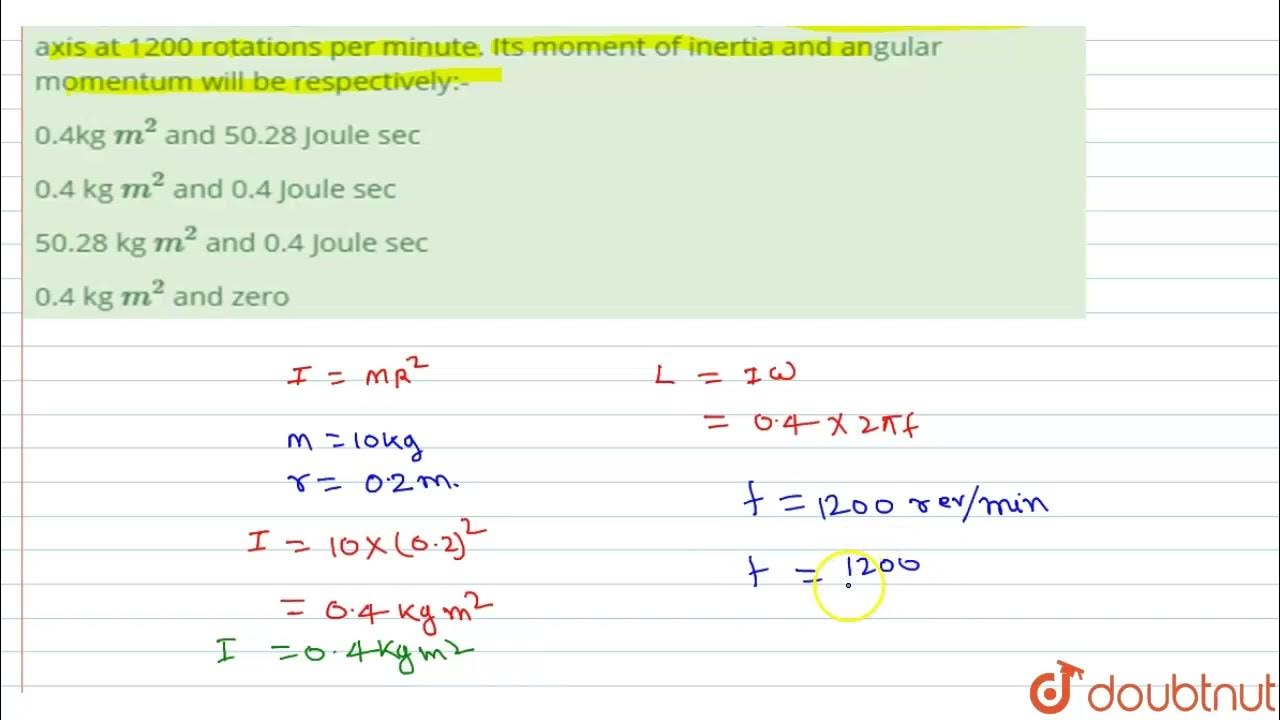 axis at 1200 rotations per minute. Its moment of inertia and angular
momentum will be respectively:-
0.4kg m² and 50.28 Joule sec
0.4 kg m² and 0.4 Joule sec
50.28 kg m² and 0.4 Joule sec
0.4 kg m² and zero
I = MR²
m = 10kg
r = 0.2m.
I = 10×(0.2)²
= 0.4 kg m²
I = 0.4 kg m²
L = Iω
= 0.4 × 2πf
f = 1200 rev/min
f = 1200
doubtnut